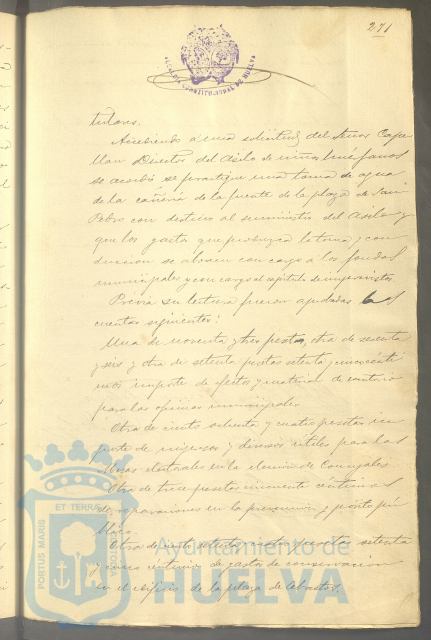 271
ALCALDIA CONSTITUCIONAL DE HUELVA
tulares.
Accediendo á una solicitud del Señor Cape
llan Director del Asilo de niños huérfanos
se acordó se practique una toma de agua
de la cañeria de la fuente de la plaza de San
Pedro con destino al suministro del Asilo y
que los gastos que produzca la toma y con
duccion se abonen con cargo á los fondos
municipales y con cargo al capitulo de imprevistos
Previa su lectura fueron aprobadas las
cuentas siguientes:
Una de noventa y tres pesetas, otra de sesenta
y seis y otra de setenta pesetas setenta y cinco cénti
mos importe de efectos y material de escritorio
para las oficinas municipales
Otra de ciento sesenta y cuatro pesetas im
porte de impresos y diversos útiles para las
Mesas electorales en la eleccion de Concejales
Otra de trece pesetas cincuenta céntimos
de reparaciones en la prevencion y
Otra de ciento setenta y cuatro pesetas setenta
y cinco céntimos de gastos de conservacion
en el edificio de la plaza de Abastos.
PORTUS MARIS ET TERRAE CUSTODIA
Ayuntamiento de
HUELVA